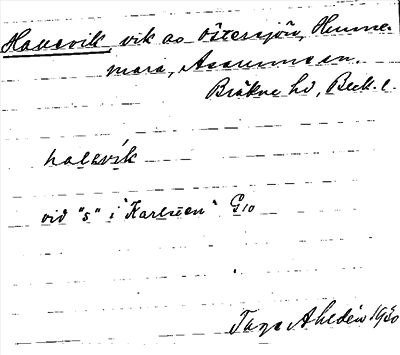 Hallsvik vik av Östersjön, Hemme-
mara, Asarums sn.
Bräkne hd, Blek. l.
halsvik
vid "s" i "Karlsten" G10
Tage Ahldén 1930